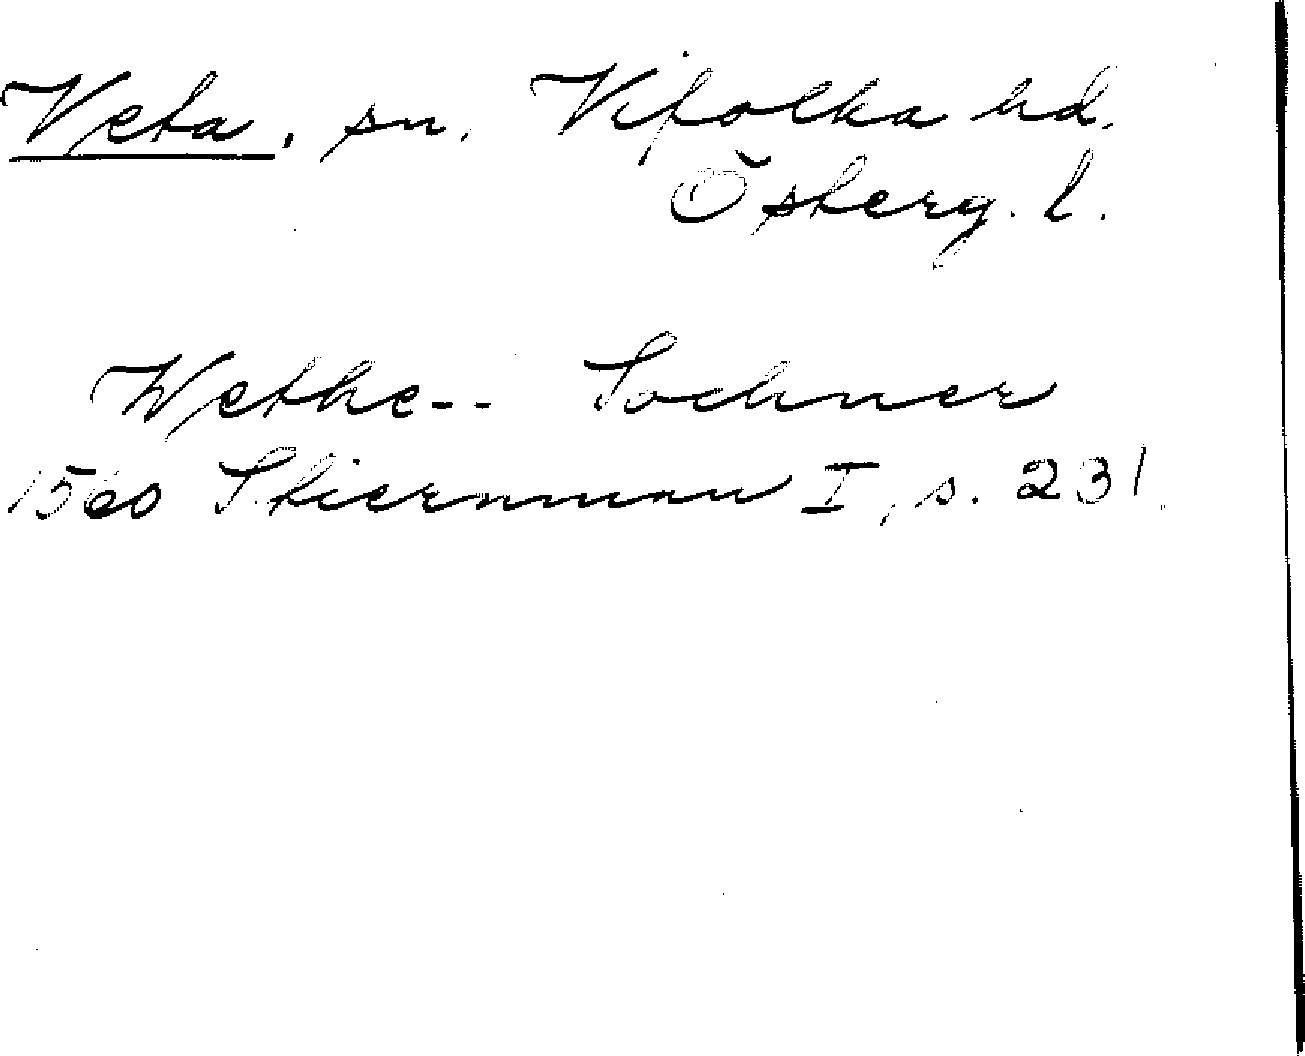 Veta, sn. Vifolka hd.
Östergl.
Wethe-- Sochner
1560 Stiernman I, s. 231.